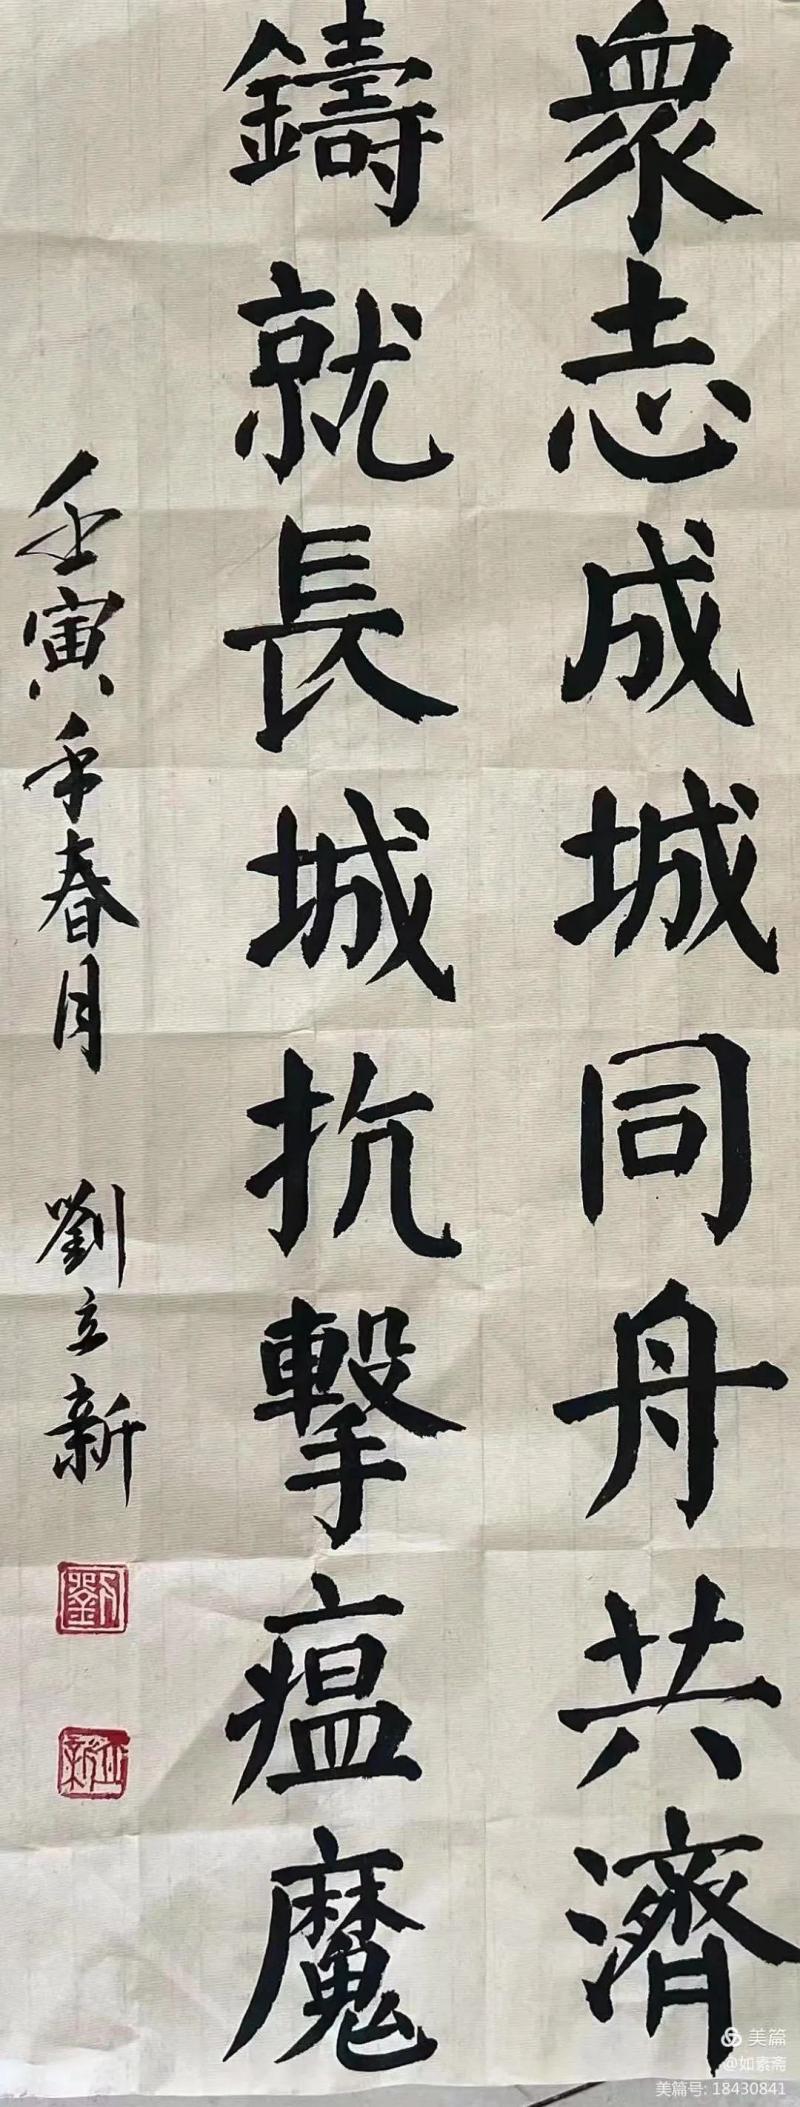 眾志成城同舟共濟
鑄就長城抗擊瘟魔
壬寅年春月 劉立新
劉
立新
美篇
@如素斋
美篇号: 18430841